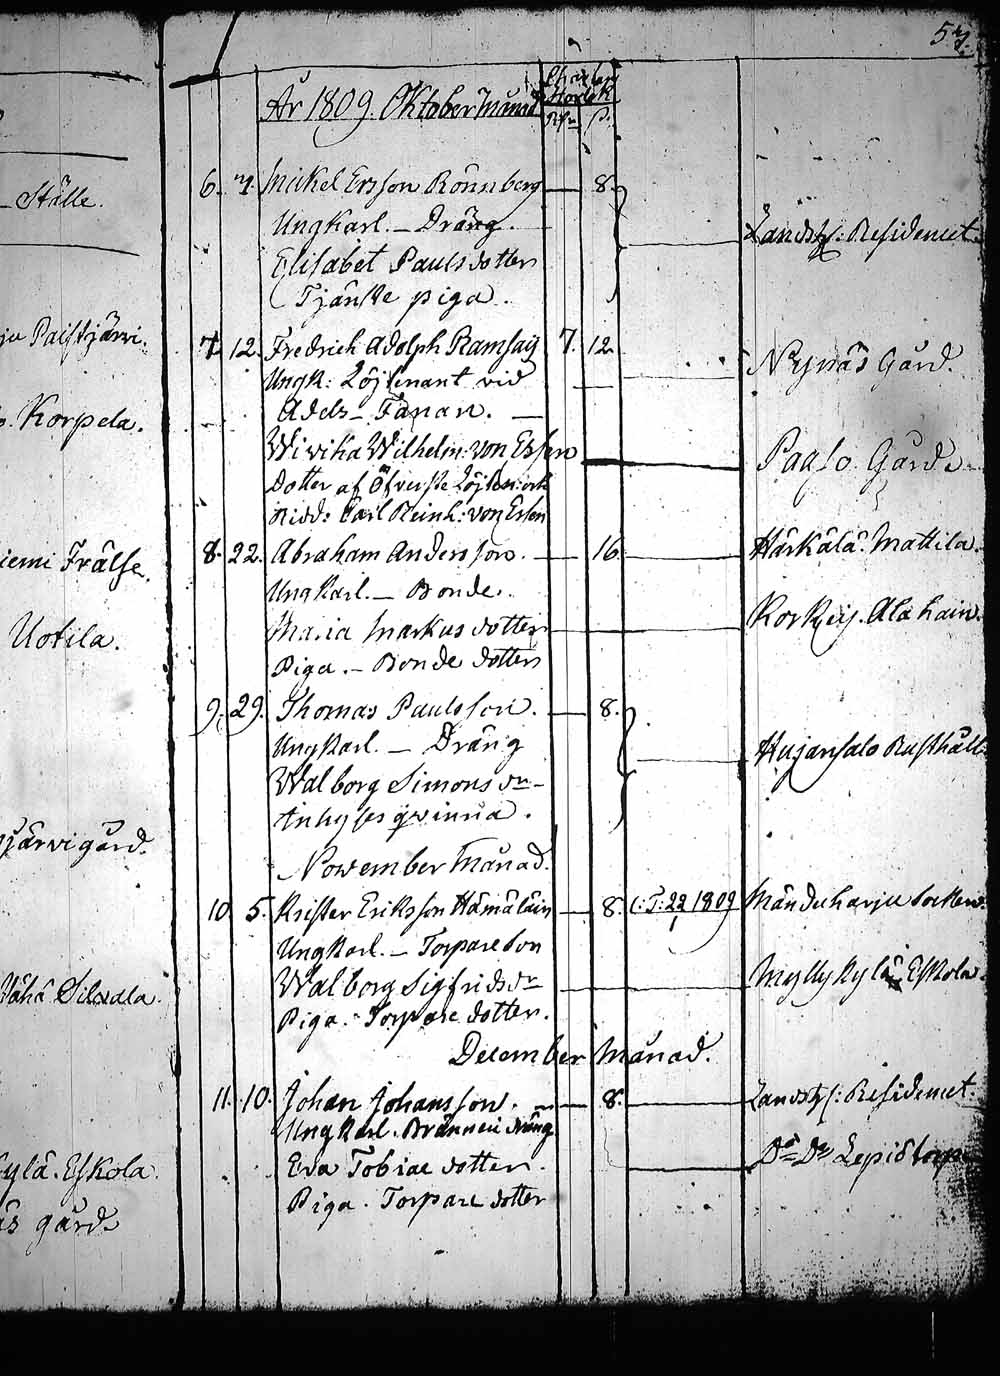 57.
År 1809. Oktober Månad
Rbr
Ställe.
6. 7. Mickel Ersson Rönnberg — 8.
Ungkarl. — Dräng.
Landsh: Residencet.
Elisabet Paulsdotter
Tjänste piga.
Paistjärvi.
7. 12. Fredrich Adolph Ramsay 7. 12.
Ungk: Löjtenant vid
Nynäs Gård.
Adels-Fanan. —
Korpela.
Wivika Wilhelm: von Essen
Paaso Gård.
Dotter af Öfverste Löjten: och
Ridd: Carl Reinh: von Essen
8. 22. Abraham Andersson. — 16. Härkälä. Mattila.
niemi Frälse.
Ungkarl. — Bonde.
Uotila.
Maria Markus dotter
Alahain.
Piga. — Bonde dotter
9. 29. Thomas Paulsson. — 8.
Ungkarl. — Dräng
Hujansalo Rusthåll
Walborg Simons dr
Inhyses qvinna.
järvi gård.
Nowember Månad.
10. 5. Krister Eriksson Hämäläin — 8. (:T: 22 1809 Mänduharju Socken.
Ungkarl. — Torpare Son
Walborg Sigfrids dr
Myllykylä Eskola.
Wähä Silwala.
Piga. Torpare dotter.
December Månad.
11. 10. Johan Johansson. — 8. Landsh: Residencet.
Ungkarl. Bränneri dräng
Eva Tobiae dotter.
Do Do Lepistorp
kylä. Eskola.
Piga. Torpare dotter
gård.